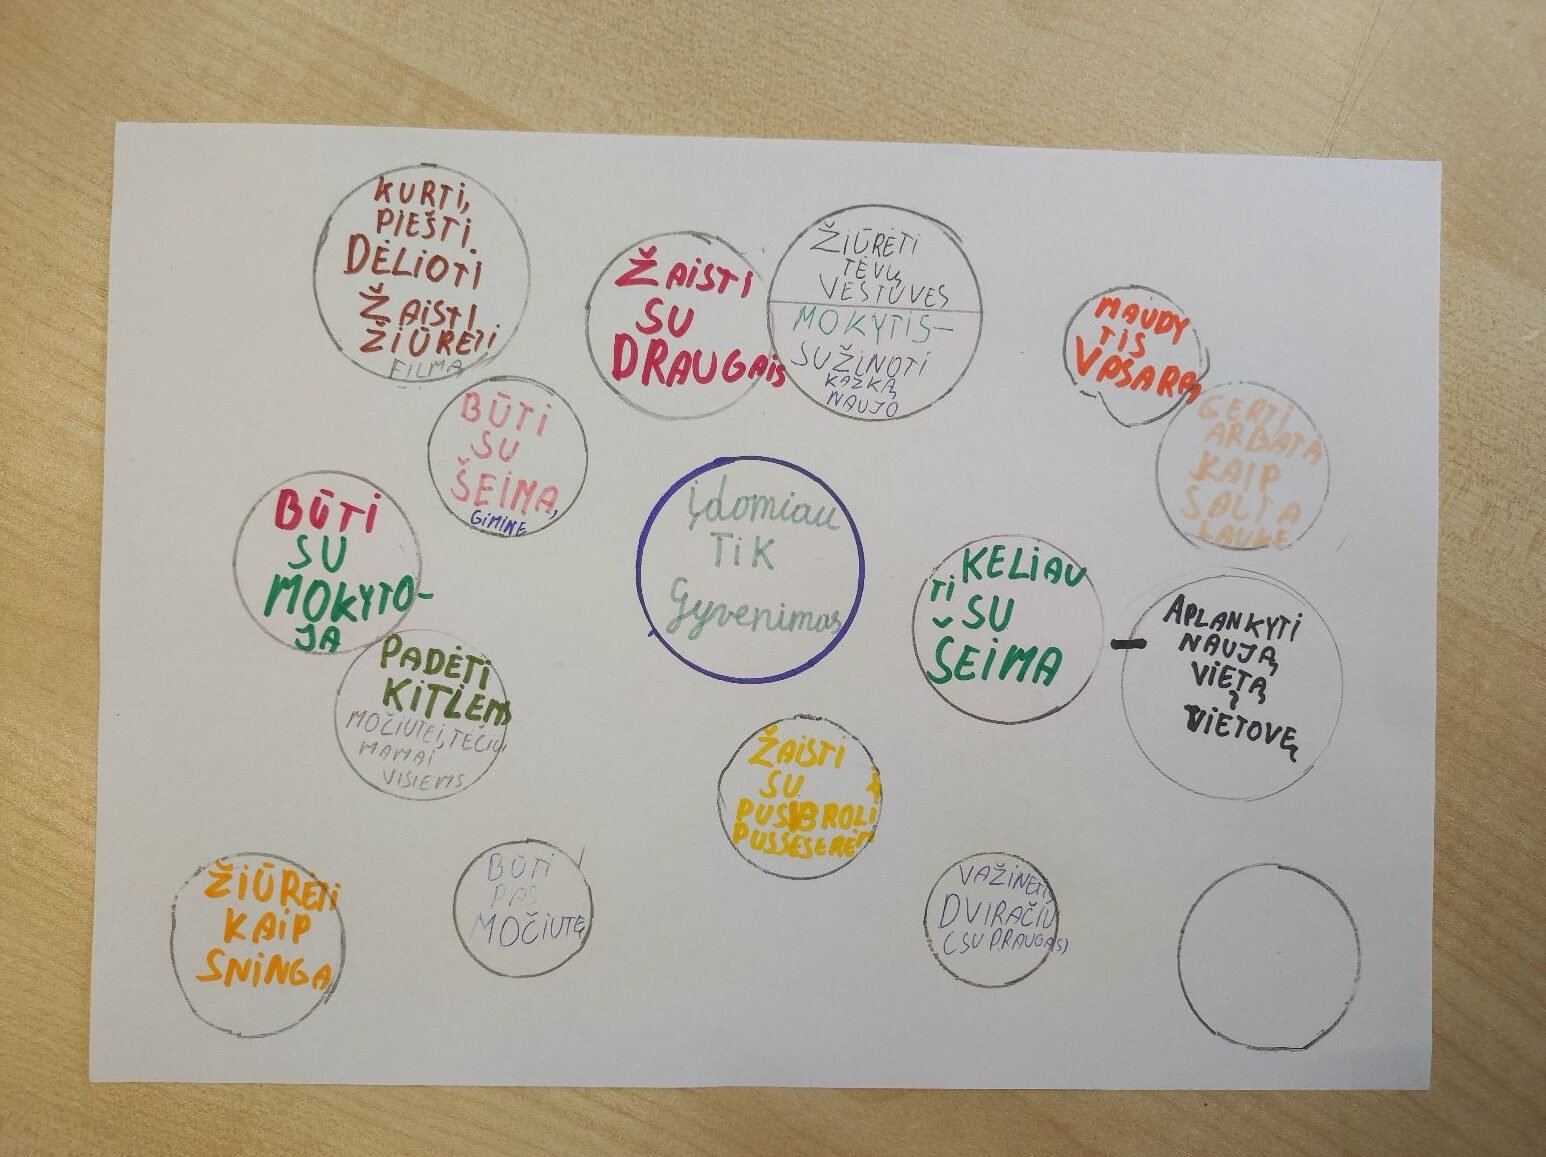 KURTI,
PIEŠTI.
DĖLIOTI
ŽAISTI
ŽIŪRĖTI
FILMĄ
ŽAISTI
SU
DRAUGAIS
ŽIŪRĖTI
TĖVŲ
VESTUVES
MOKYTIS-
SUŽINOTI
KAŽKĄ
NAUJO
MAUDY
TIS
VASARĄ
GERTI
ARBATĄ
KAIP
ŠALTA
LAUKE
BŪTI
SU
ŠEIMA,
GIMINE
BŪTI
SU
MOKYTO-
JA
Įdomiau
Tik
Gyvenimas
KELIAU
TI SU
ŠEIMA
APLANKYTI
NAUJĄ
VIETĄ
VIETOVĘ
PADĖTI
KITIEMS
MOČIUTEI, TĖČIUI,
MAMAI
VISIEMS
ŽAISTI
SU
PUSBROLI
PUSSESERĖM
ŽIŪRĖTI
KAIP
SNINGA
BŪTI
PAS
MOČIUTĘ
VAŽINĖTI
DVIRAČIU
(SU DRAUGAIS)